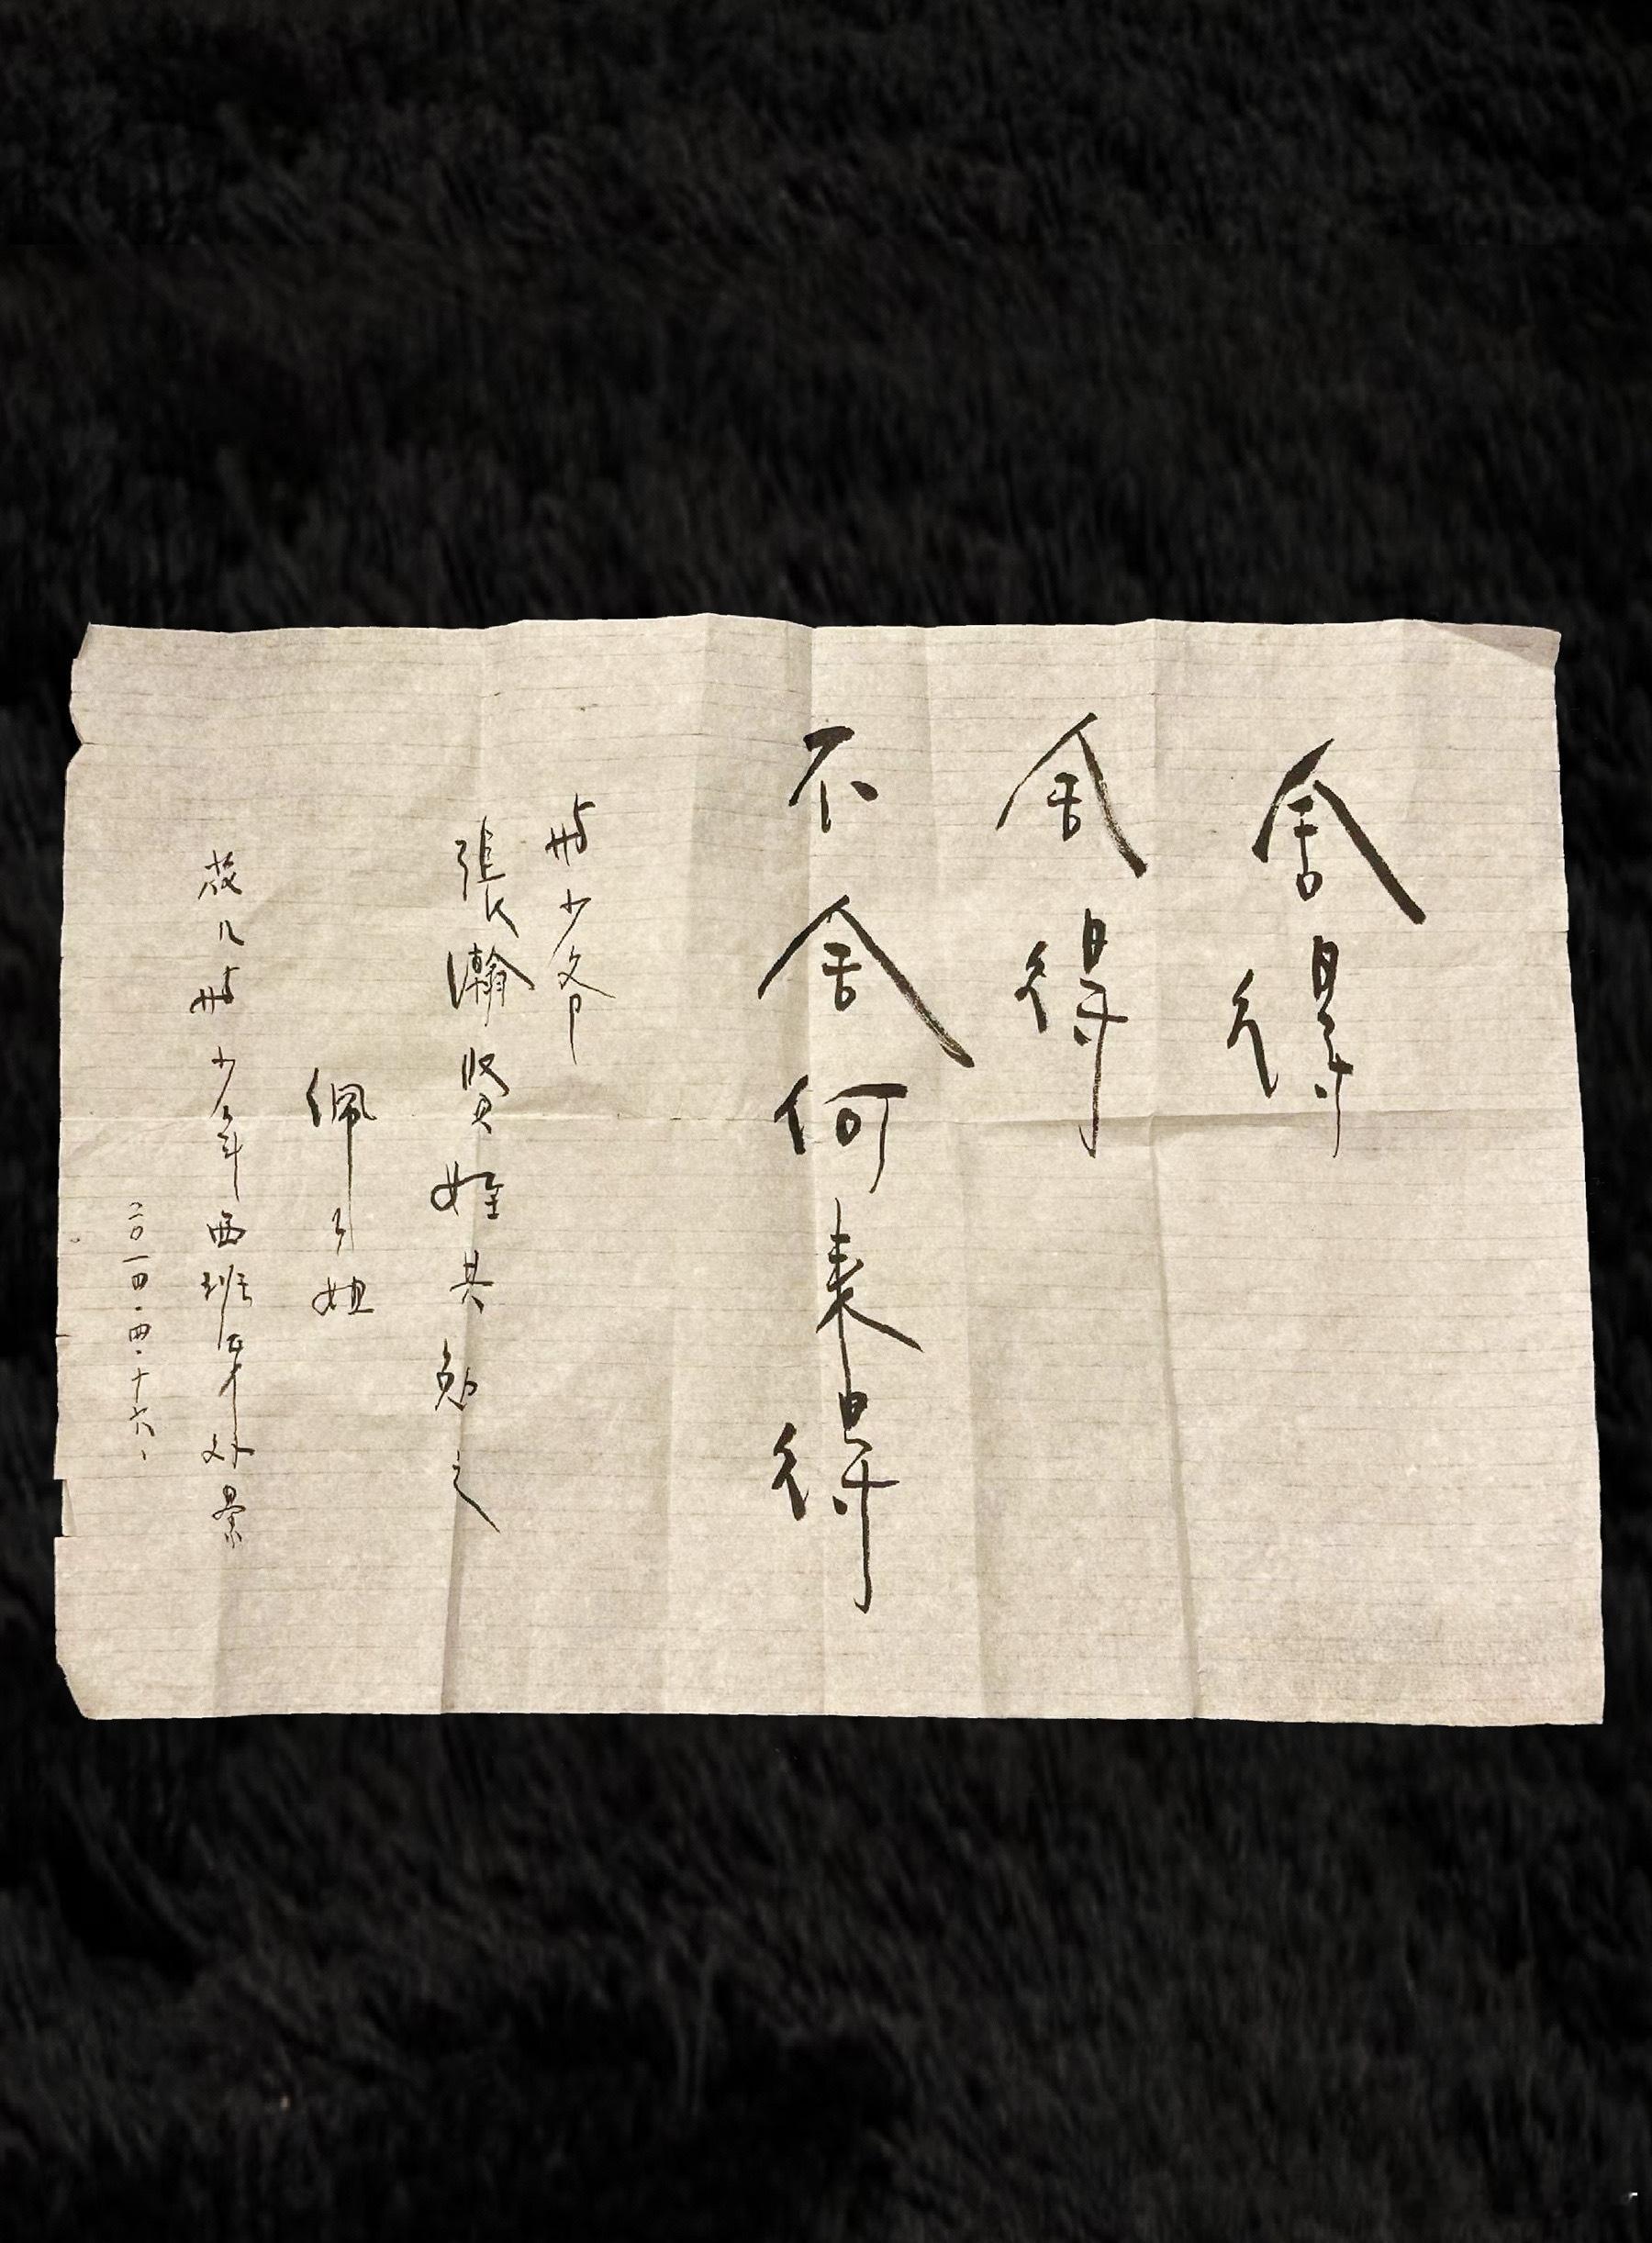 舍得
舍得
不舍何来得
与少爷
張瀚贤姪共勉之
佩々姐
花儿与少年西班牙外景
二〇一四.四.十六、